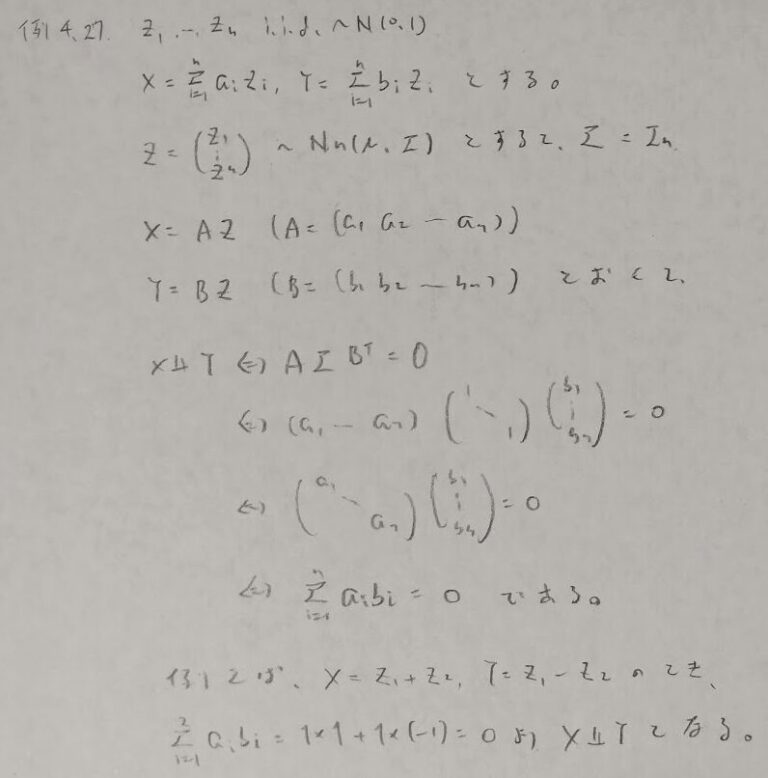 例4.27. Z₁, …, Zₙ i.i.d. ~ N(0,1)
X = Σᵢ₌₁ⁿ aᵢZᵢ, Y = Σᵢ₌₁ⁿ bᵢZᵢ とする。
Z = (Z₁ ⋮ Zₙ) ~ Nn(μ, Σ) とすると、Σ = Iₙ.
X = AZ (A = (a₁ a₂ … aₙ))
Y = BZ (B = (b₁ b₂ … bₙ)) とおくと、
X⫫Y ⇔ AΣBᵀ = 0
⇔ (a₁ … aₙ) (1 ⋱ 1) (b₁ ⋮ bₙ) = 0
⇔ (a₁ ⋱ aₙ) (b₁ ⋮ bₙ) = 0
⇔ Σᵢ₌₁ⁿ aᵢbᵢ = 0 である。
例えば、X = Z₁ + Z₂, Y = Z₁ − Z₂ のとき、
Σᵢ₌₁² aᵢbᵢ = 1×1 + 1×(−1) = 0 より X⫫Y となる。